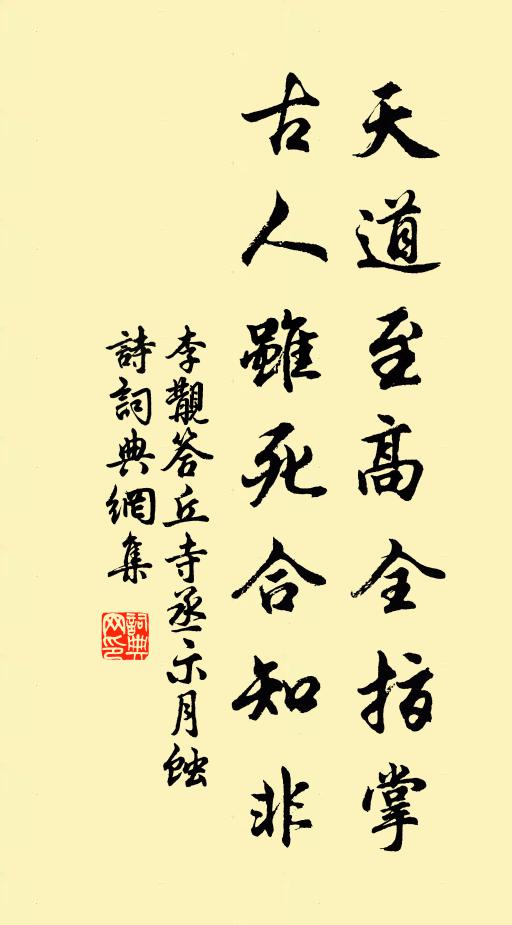 天道至高全指掌
古人雖死合知非
李覯答丘寺丞示月蝕
詩詞典網集
詞典网印